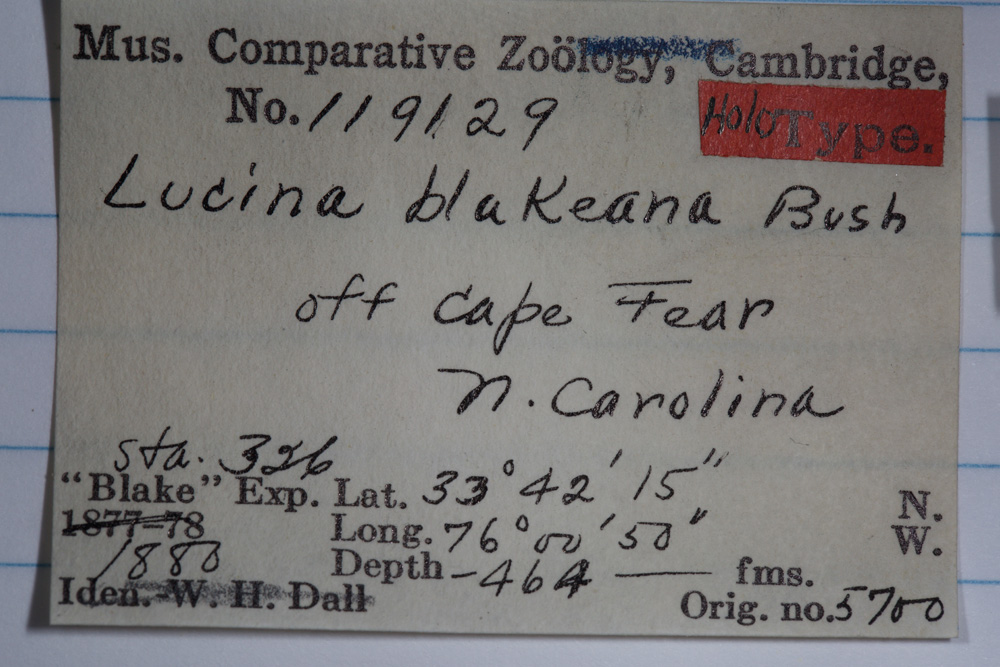 Mus. Comparative Zoölogy, Cambridge,
No. 119129 HoloType.
Lucina blakeana Bush
off Cape Fear
N. Carolina
sta. 326
"Blake" Exp. Lat. 33° 42' 15" N.
1877-78 Long. 76° 00' 50" W.
1880 Depth - 464 — fms.
Iden. W. H. Dall Orig. no. 5700